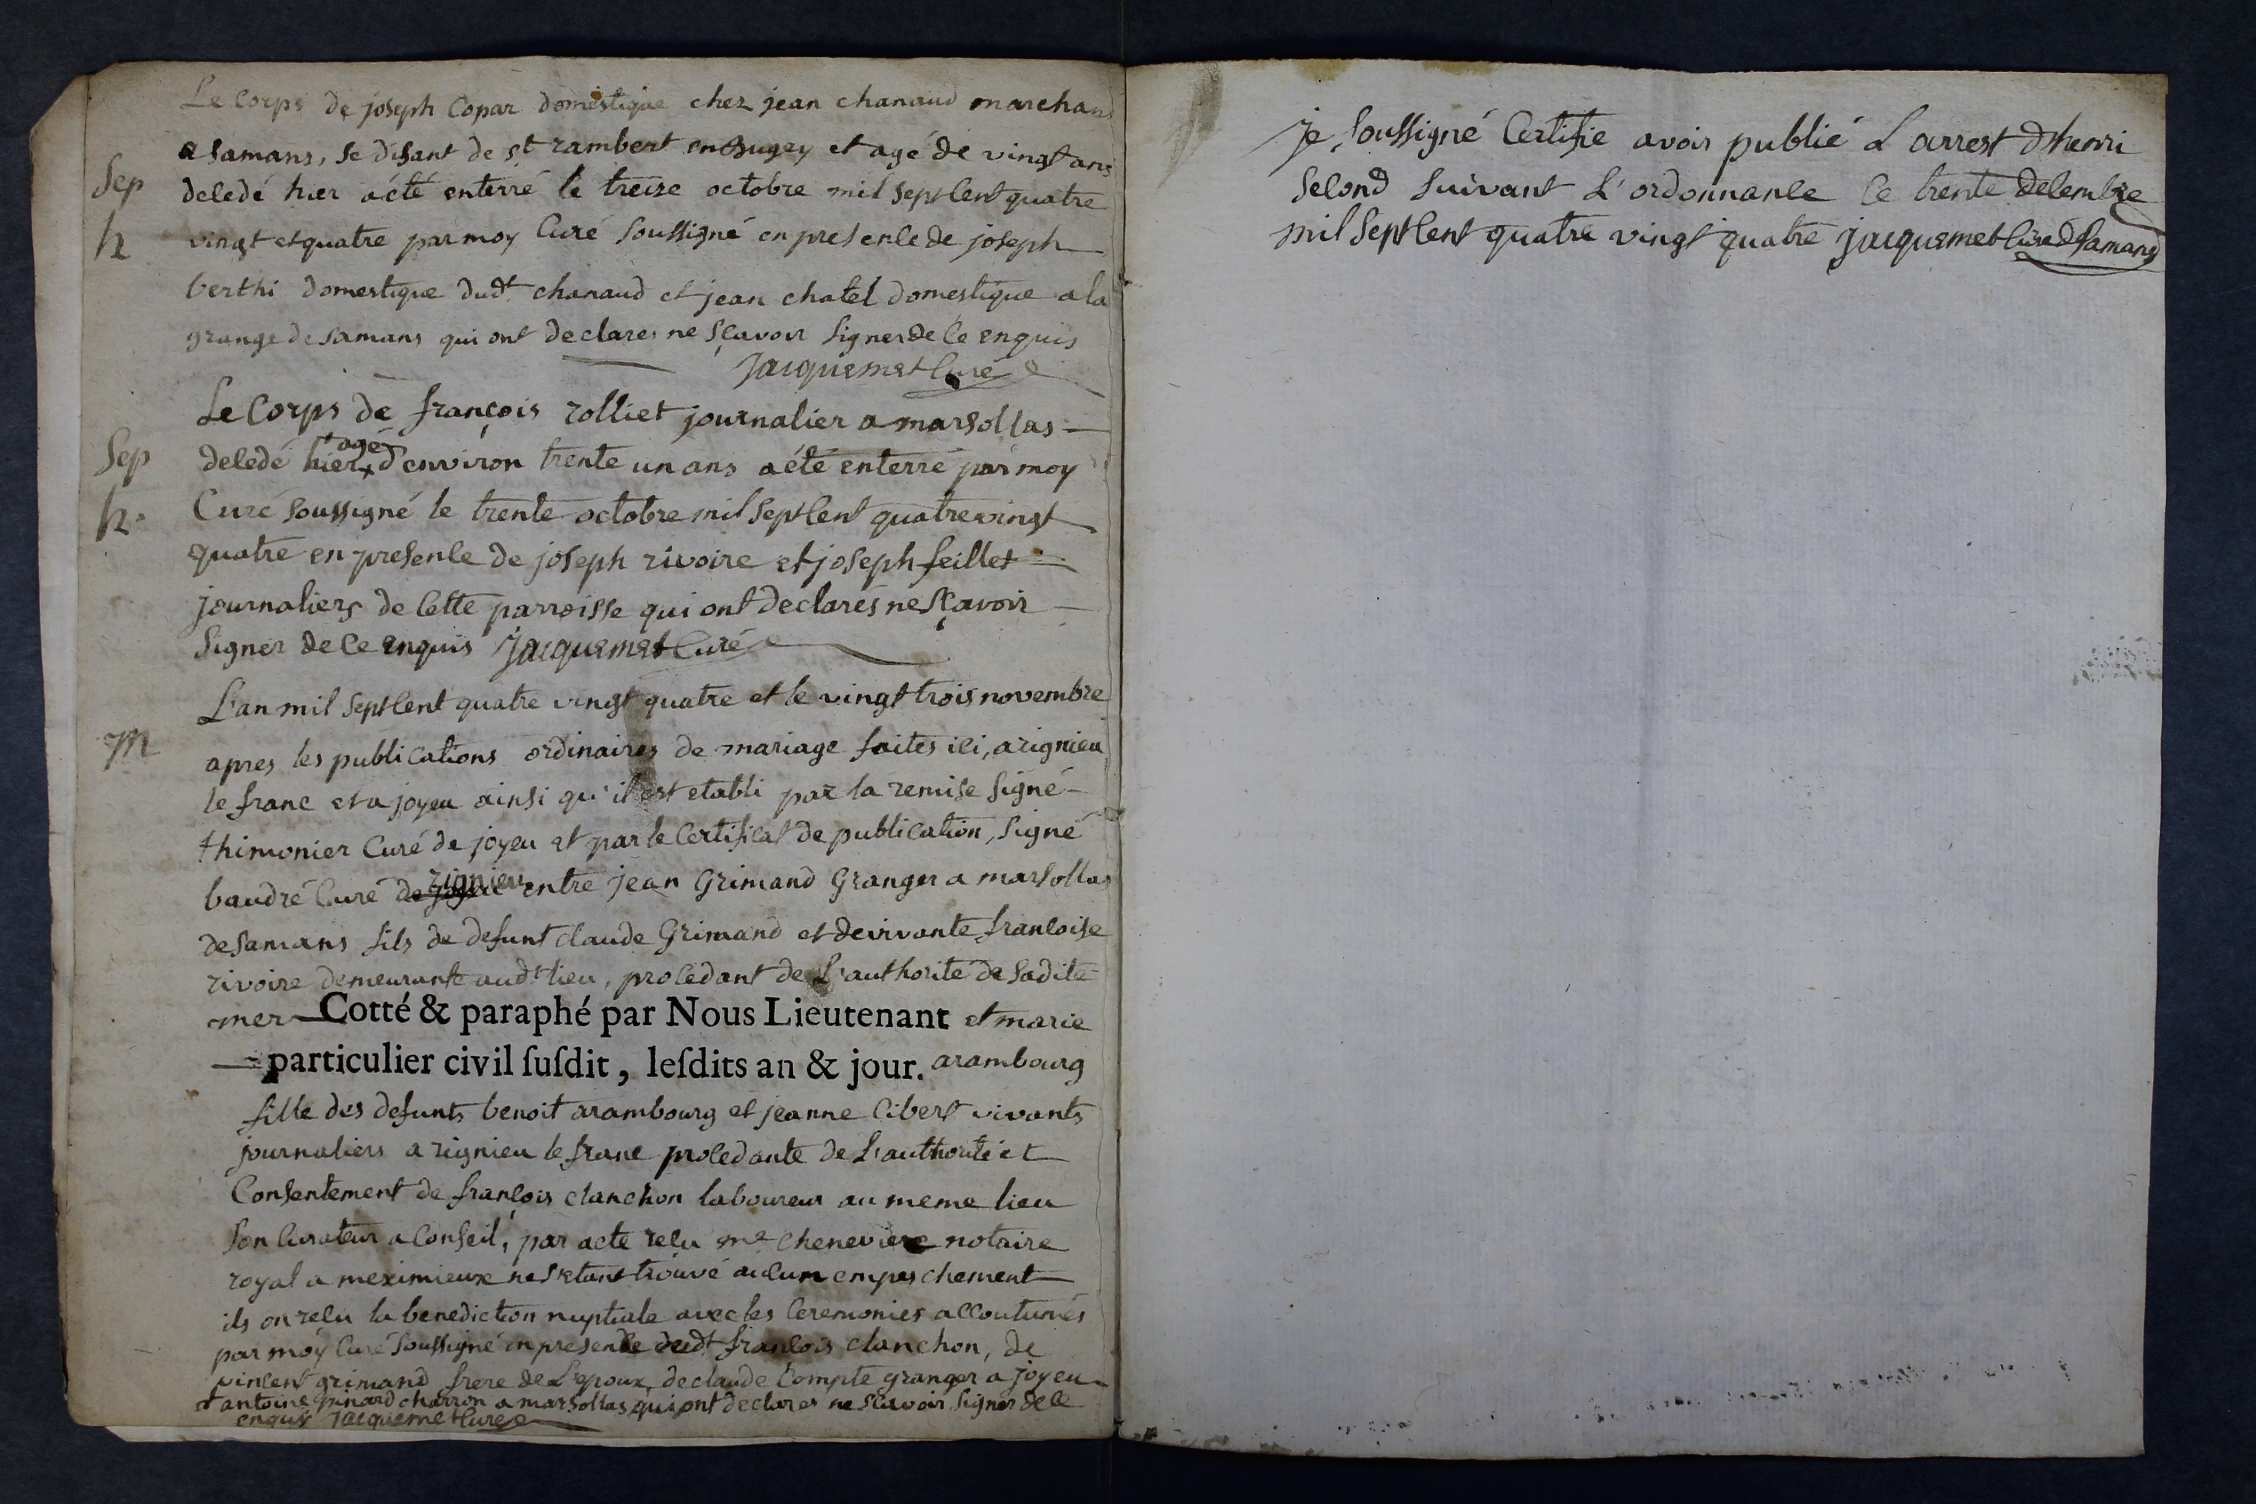 Le Corps de joseph Copar domestique chez jean chanaud marchand
a samans, se disant de st rambert en Bugey et agé de vingt ans
Sep
decedé hier a été enterré le treize octobre mil sept cent quatre
h
vingt et quatre par moy Curé soussigné en presence de joseph
berthi domestique dudt chanaud et jean chatel domestique a la
grange de samans qui ont declares ne sçavoir signer de ce enquis
Jacquemet Curé
Le Corps de françois rolliet journalier a marsollas
Sep
decedé hier agé d'environ trente un ans a été enterré par moy
h.
Curé soussigné le trente octobre mil sept cent quatre vingt
quatre en presence de joseph rivoire et joseph feillet
journaliers de cette parroisse qui ont declarés ne sçavoir
signer de ce enquis Jacquemet Curé
L'an mil sept cent quatre vingt quatre et le vingt trois novembre
M
apres les publications ordinaires de mariage faites ici, a rignieu
le franc et a joyeu ainsi qu'il est etabli par la remise signé
thimonier Curé de joyeu et par le Certificat de publication, signé
baudré Curé de joyeu rignieu entre jean Grimand Granger a marsollas
de samans fils de defunt claude Grimand et de vivante francoise
rivoire demeurante audt lieu, procedant de L'authorité de sadite
mer Cotté & paraphé par Nous Lieutenant et marie
particulier civil suſdit, leſdits an & jour. arambourg
fille des defunts benoit arambourg et jeanne Cibert vivants
journaliers a rignieu le franc procedante de L'authorité et
Consentement de françois clanchon laboureur au meme lieu
son Curateur a Conseil, par acte recu me cheneviere notaire
royal a meximieux ne s'etant trouvé aucun empeschement
ils on recu la benediction nuptiale avec les Ceremonies accoutumés
par moy Curé soussigné en presence dudt francois clanchon, de
vincent grimand frere de L'epoux, de claude Compte granger a joyeu
et antoine pinard charron a marsollas qui ont declares ne scavoir signer de ce
enquis Jacquemet Curé
je, soussigné Certifie avoir publié L'arrest d'henri
second suivant L'ordonnance ce trente decembre
mil sept cent quatre vingt quatre jacquemet Curé de samans